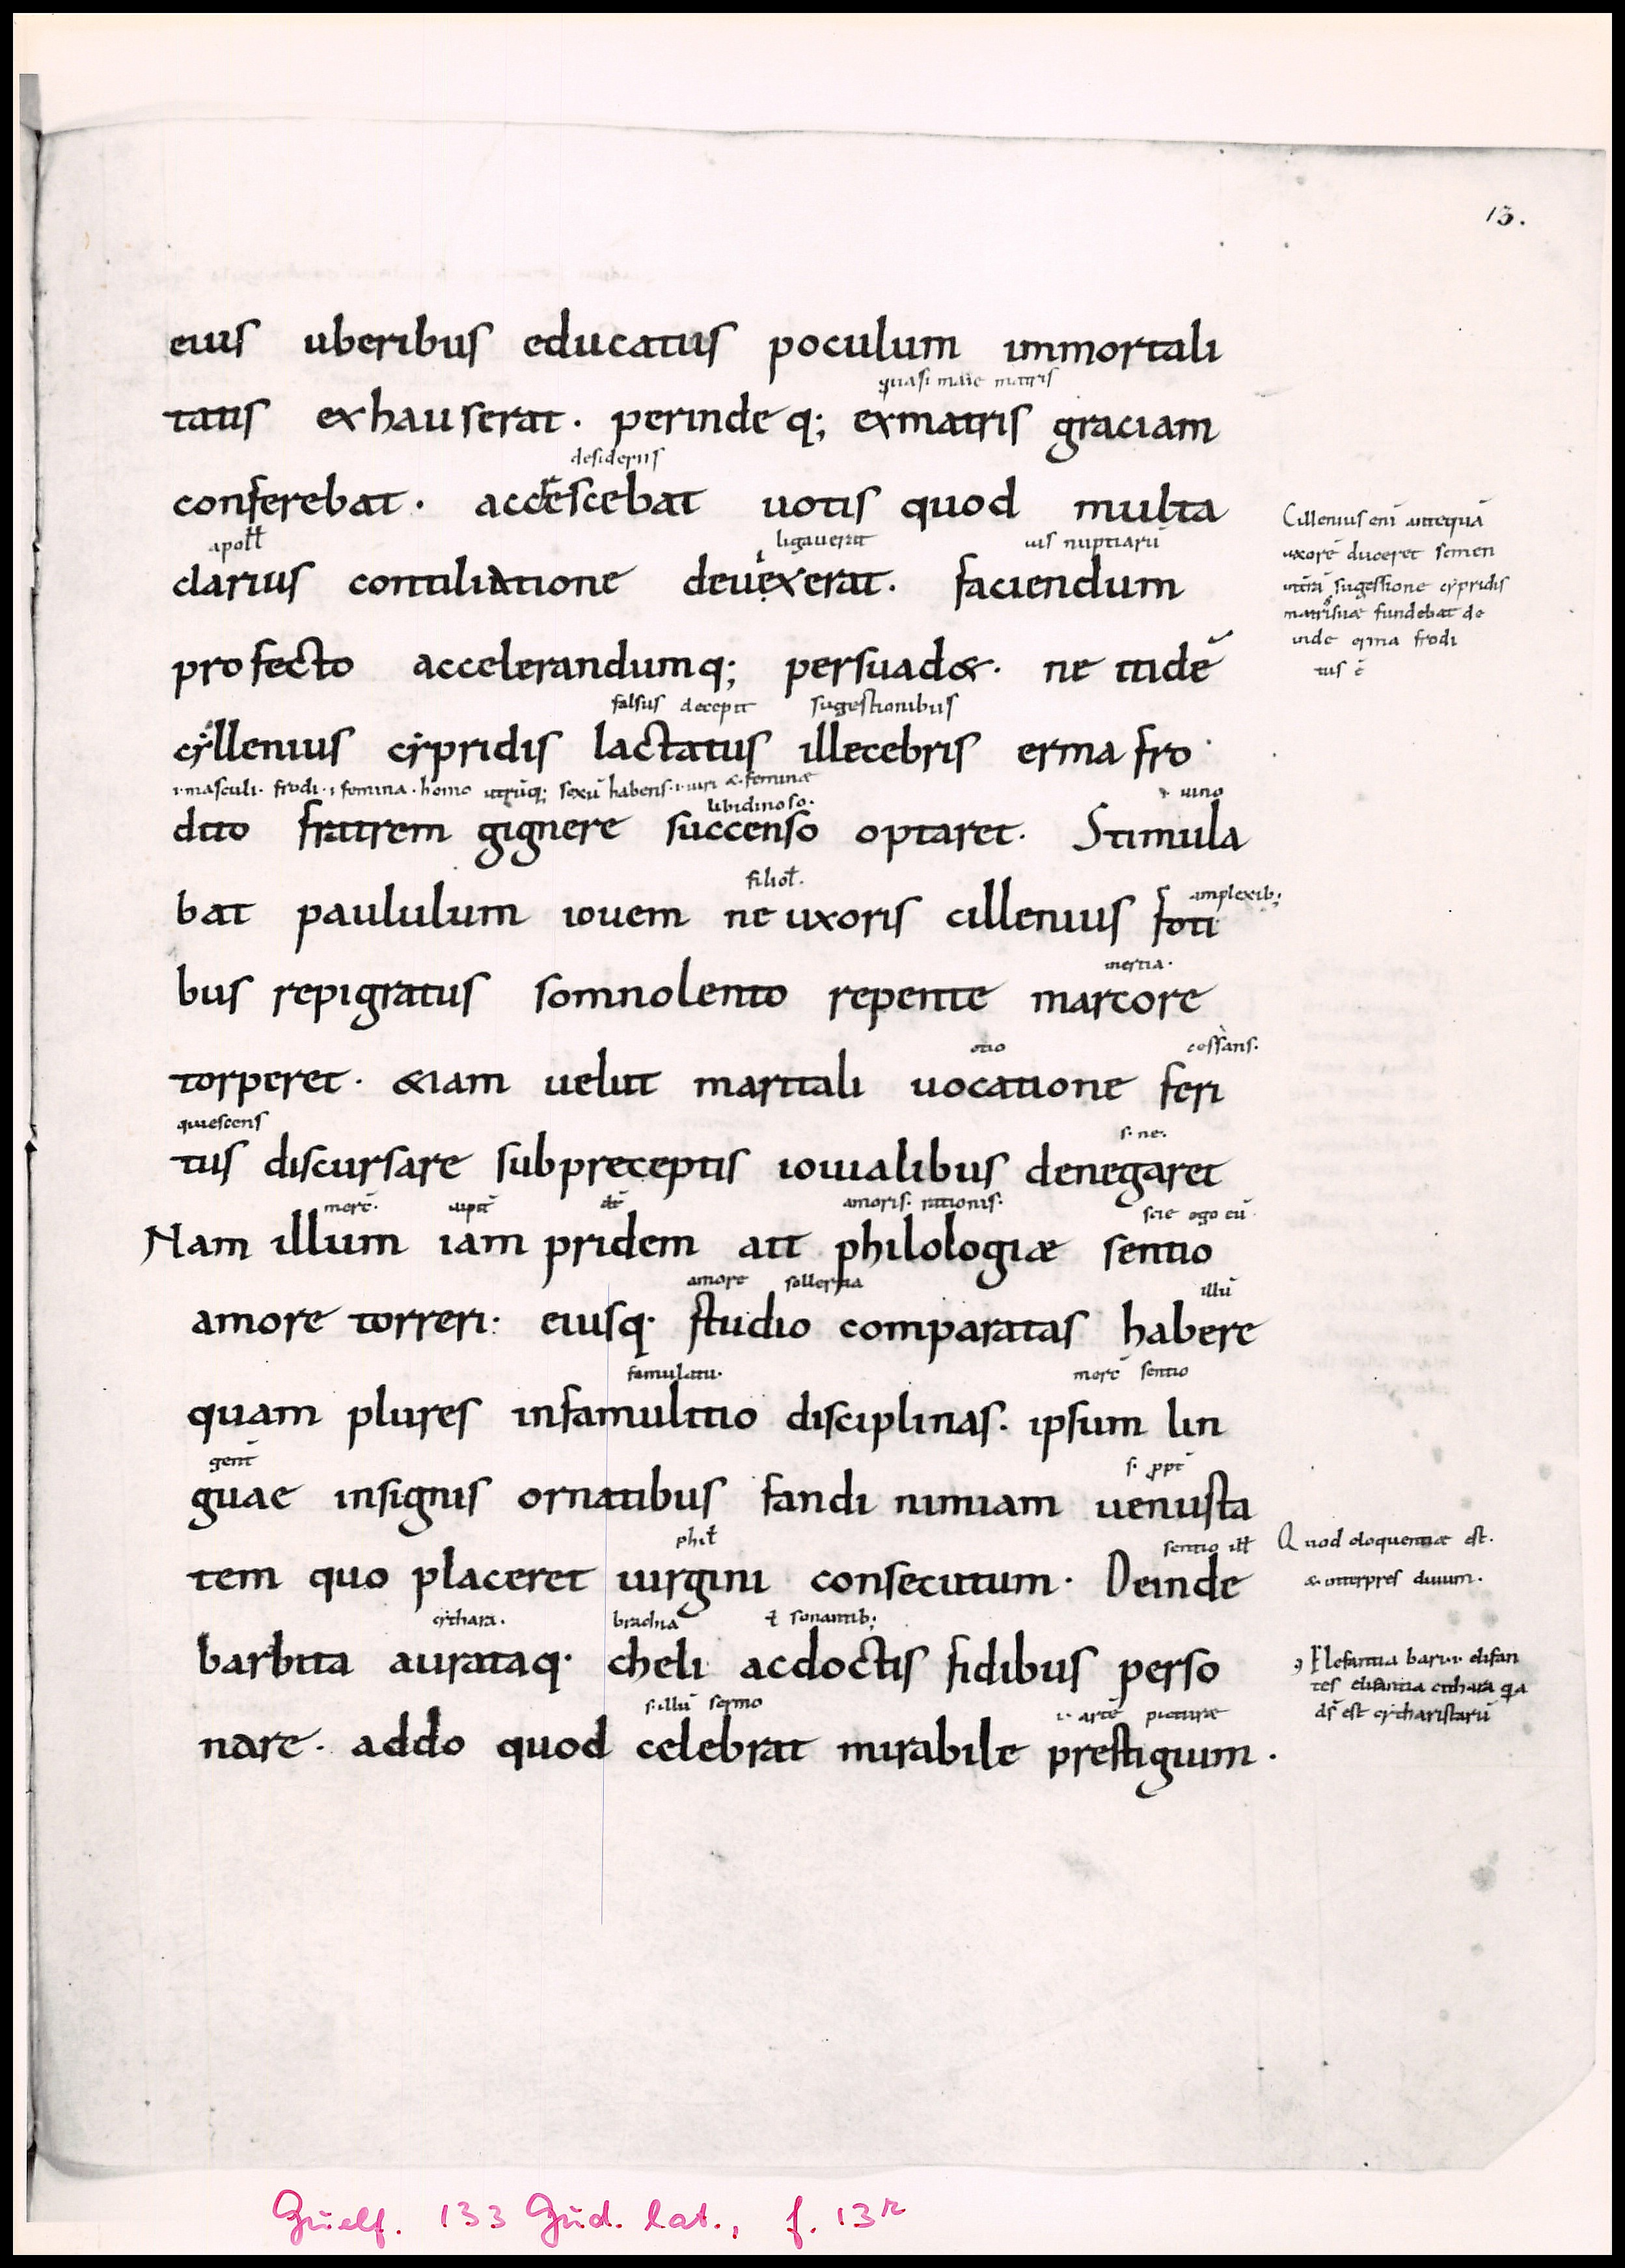 13.
eius uberibus educatus poculum immortali
quasi maie matris
tatis exhauserat · perinde q; exmatris graciam
desideriis
conferebat · accrescebat uotis quod multa
apoll ligauerat uis nuptiarū
clarius contiliatione deuexerat · faciendum
profecto accelerandumq; persuad& · ne itidē
falsus decepit sugestionibus
cyllenius cypridis lactatus illecebris erma fro
·i· masculi · frodi · i femina · homo utrūq; sexū habens · i · uiri & feminæ
libidinoso · uino
dito fratrem gignere succenso optaret · Stimula
filiol. amplexib;
bat paululum iouem ne uxoris cillenius foti
inertia ·
bus repigratus somnolento repente marcore
otio cessans ·
torperet · &iam uelut martiali uocatione feri
quiescens s · ne ·
tus discursare subpreceptis iouialibus denegaret
merc̄ · iupit̄ amoris · rationis · scie ego eū
Nam illum iam pridem ait philologiæ sentio
amore sollertia illū
amore torreri : eiusq · studio comparatas habere
famulatu · merc̄ sentio
quam plures infamulitio disciplinas · ipsum lin
s · ppt̄
guae insignis ornatibus fandi nimiam uenusta
phil sentio ill
tem quo placeret uirgini consecutum · Deinde
cythara · ł sonantib;
barbita aurataq · cheli acdoctis fidibus perso
s · illū sermo ·i· artē picturæ
nare · addo quod celebrat mirabile prestigium ·
Cillenius eni antequā
uxorē duceret semen
sugestione cypridis
matrissuæ fundebat de
inde erma frodi
tus ē
Quod eloquentiæ est ·
& interpres diuum ·
ds̄ est cytharistarū
Guelf. 133 Gud. lat., f. 13r